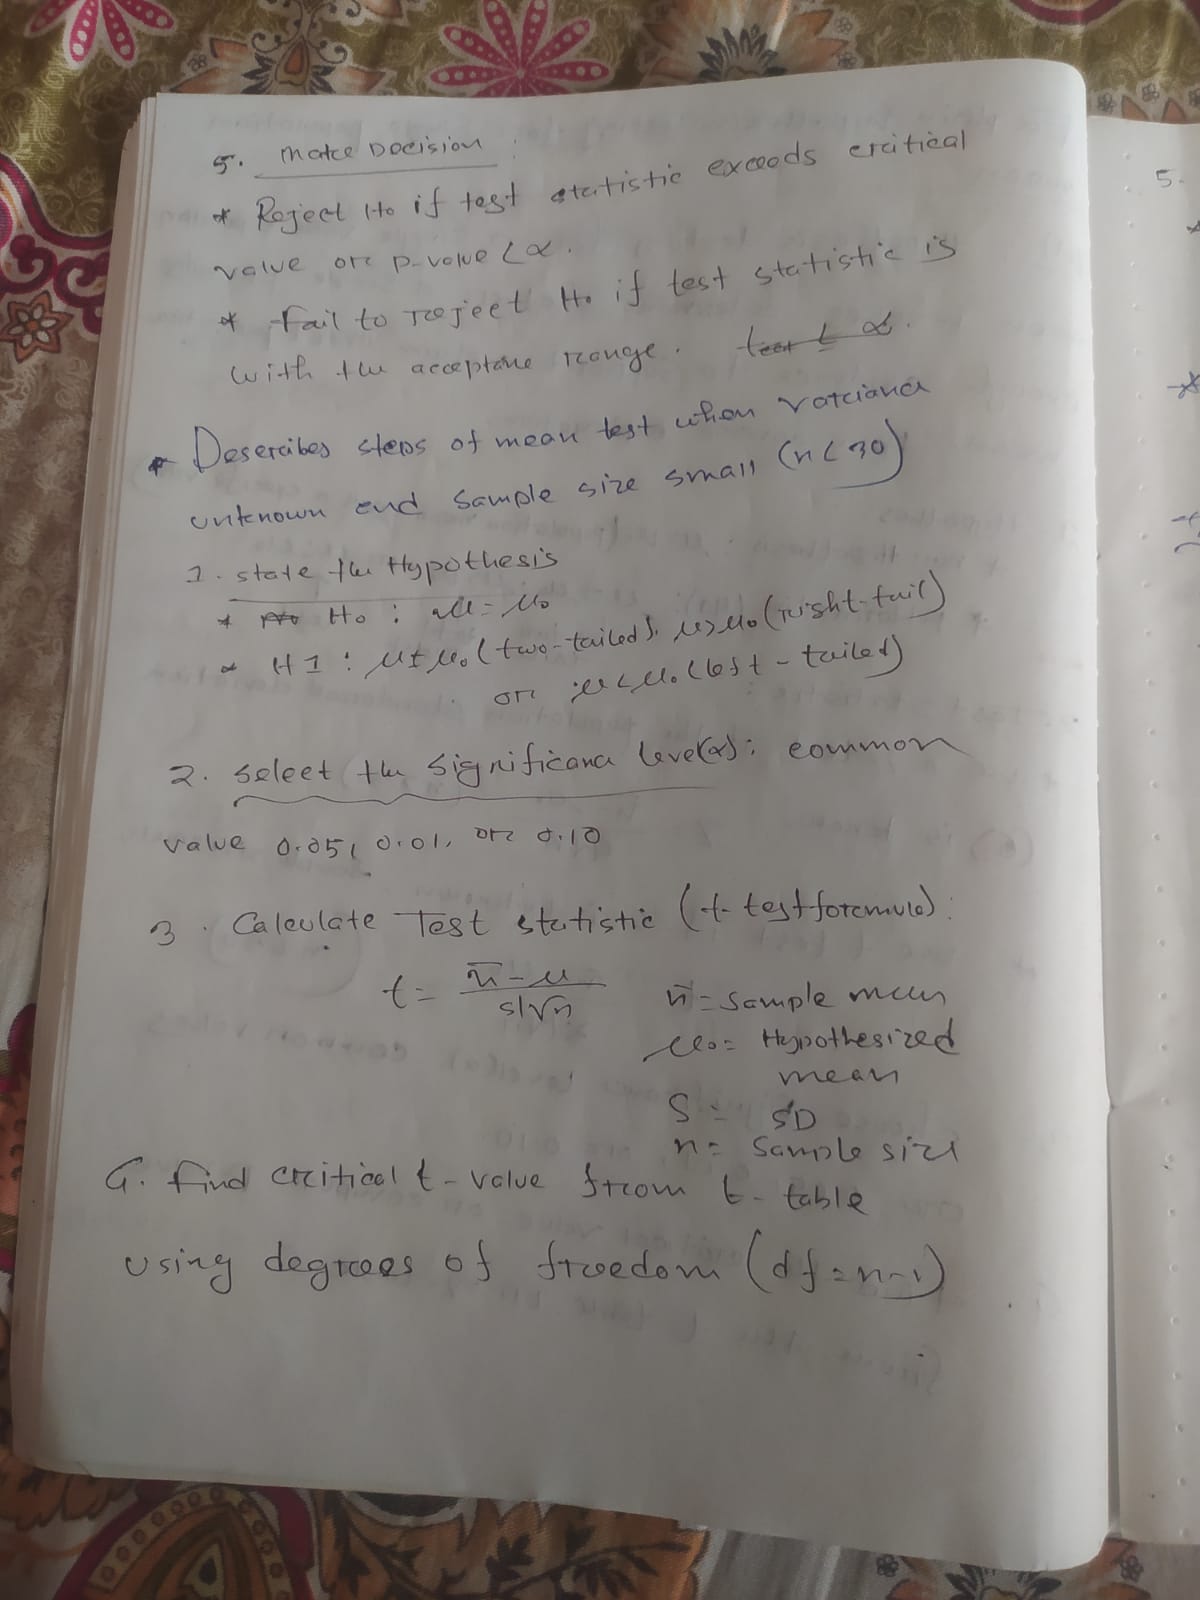 5. Make Decision :
* Reject Ho if test statistic exceeds critical
value or p-value < α.
* Fail to reject Ho if test statistic is
with the acceptane range.
* Describes steps of mean test when variance
unknown and sample size small (n < 30)
1. state the Hypothesis
* Ho : μ = μo
* H1 : μ ≠ μo (two-tailed), μ > μo (right-tail)
or μ < μo (left-tailed)
2. select the significance level(α): common
value 0.05, 0.01, or 0.10
3. Calculate Test statistic (t-test formula):
t = x̄ - μ / s/√n
x̄ = sample mean
μo = Hypothesized
mean
S = SD
n = sample size
4. Find critical t-value from t-table
using degrees of freedom (df = n-1)
5.